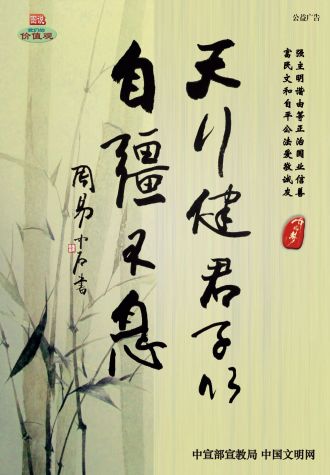 图说
我们的
价值观
公益广告
富强
民主
文明
和谐
自由
平等
公正
法治
爱国
敬业
诚信
友善
中国梦
天行健君子以
自彊不息
周易 中石書
中宣部宣教局 中国文明网